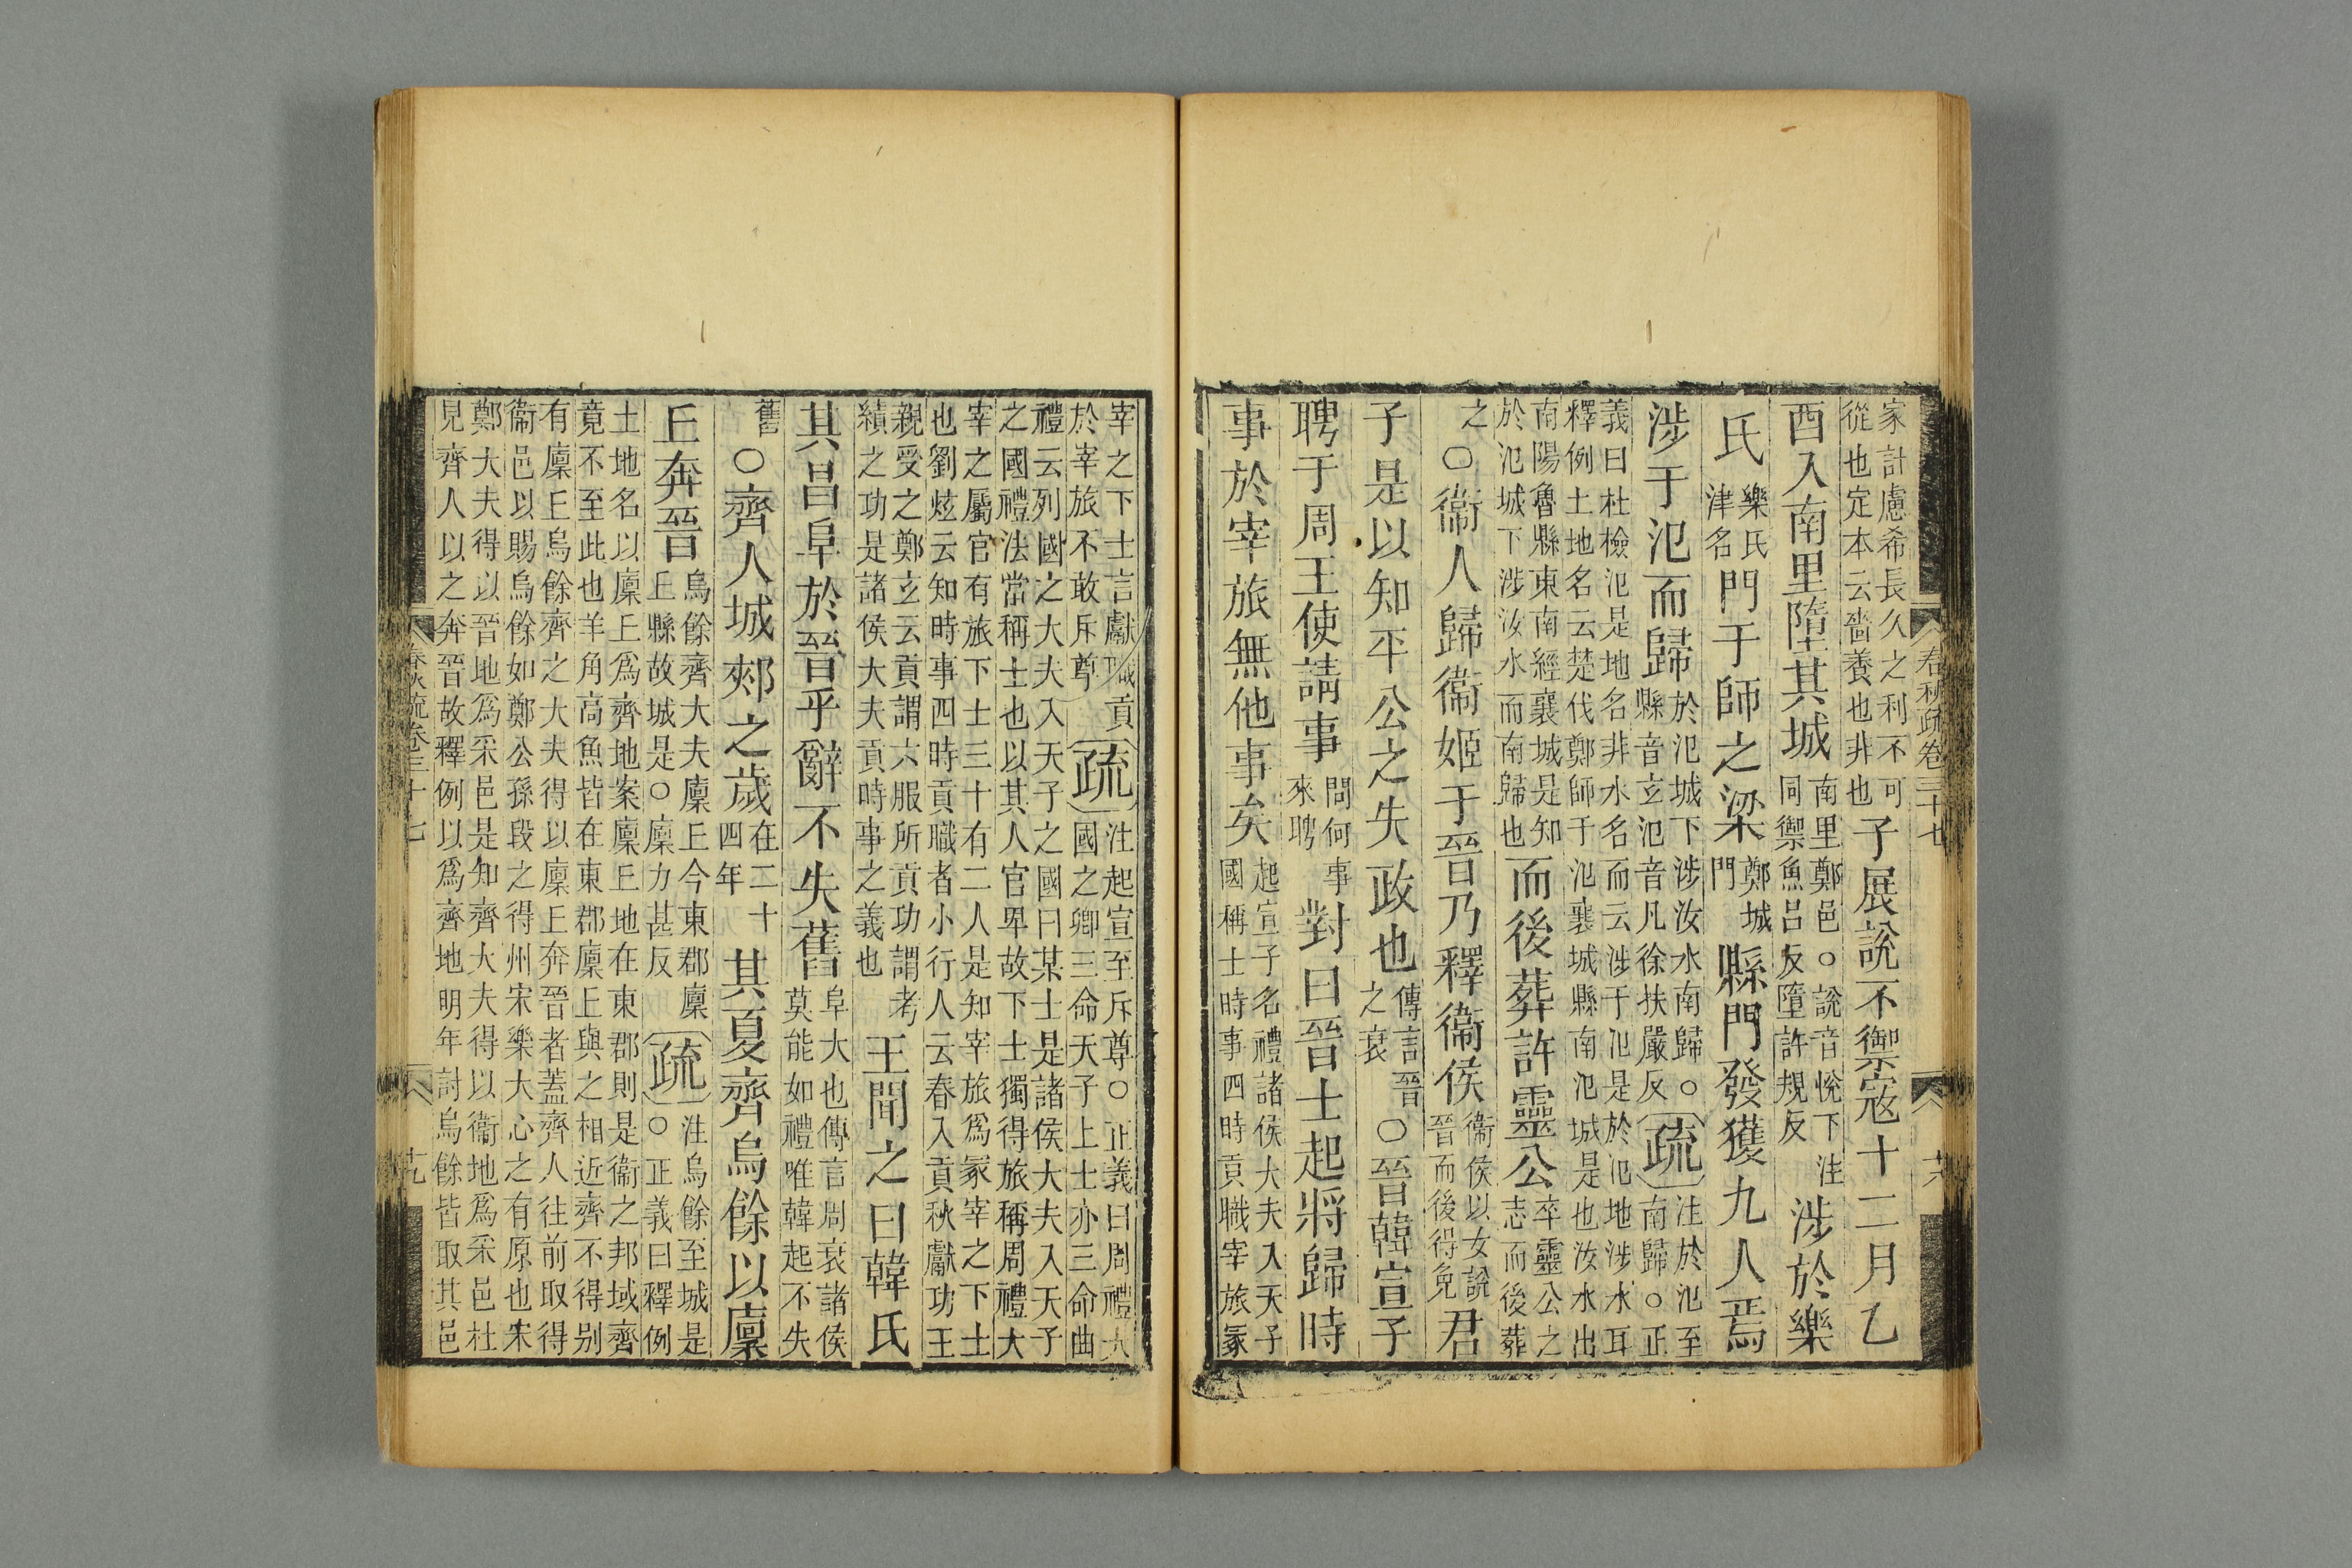 春秋疏卷三十七
家計慮希長久之利不可從也定本云嗇養也非也子展說不禦寇十二月乙
酉入南里墮其城南里鄭邑○說音悅下注同禦魚呂反墮許規反涉於樂
氏樂氏津名門于師之梁鄭城門縣門發獲九人焉
涉于氾而歸於氾城下涉汝水南歸○縣音玄氾音凡徐扶嚴反疏注於氾至南歸○正
義曰杜檢氾是地名非水名而云涉于氾是於氾地涉水耳釋例土地名云楚伐鄭師于氾襄城縣南氾城是也汝水出
南陽魯縣東南經襄城是知於氾城下涉汝水而南歸也而後葬許靈公卒靈公之志而後葬
之○衞人歸衞姬于晉乃釋衞侯衞侯以女說晉而後得免君
子是以知平公之失政也傳言晉之衰○晉韓宣子
聘于周王使請事問何事來聘對曰晉士起將歸時
事於宰旅無他事矣起宣子名禮諸侯大夫入天子國稱士時事四時貢職宰旅冢
宰之下士言獻職貢於宰旅不敢斥尊疏注起宣至斥尊○正義曰周禮大國之卿三命天子上士亦三命曲
禮云列國之大夫入天子之國曰某士是諸侯大夫入天子之國禮法當稱士也以其人官卑故下士獨得旅稱周禮大
宰之屬官有旅下士三十有二人是知宰旅爲冢宰之下士也劉炫云知時事四時貢職者小行人云春入貢秋獻功王
親受之鄭玄云貢謂六服所貢功謂考績之功是諸侯大夫貢時事之義也王聞之曰韓氏
其昌阜於晉乎辭不失舊阜大也傳言周衰諸侯莫能如禮唯韓起不失
舊○齊人城郟之歲在二十四年其夏齊烏餘以廩
丘奔晉烏餘齊大夫廩丘今東郡廩丘縣故城是○廩力甚反疏注烏餘至城是○正義曰釋例
土地名以廩丘爲齊地案廩丘地在東郡則是衞之邦域齊竟不至此也羊角高魚皆在東郡廩丘與之相近齊不得別
有廩丘烏餘齊之大夫得以廩丘奔晉者蓋齊人往前取得衞邑以賜烏餘如鄭公孫段之得州宋樂大心之有原也宋
鄭大夫得以晉地爲采邑是知齊大夫得以衞地爲采邑杜見齊人以之奔晉故釋例以爲齊地明年討烏餘皆取其邑
春秋疏卷三十七 十九